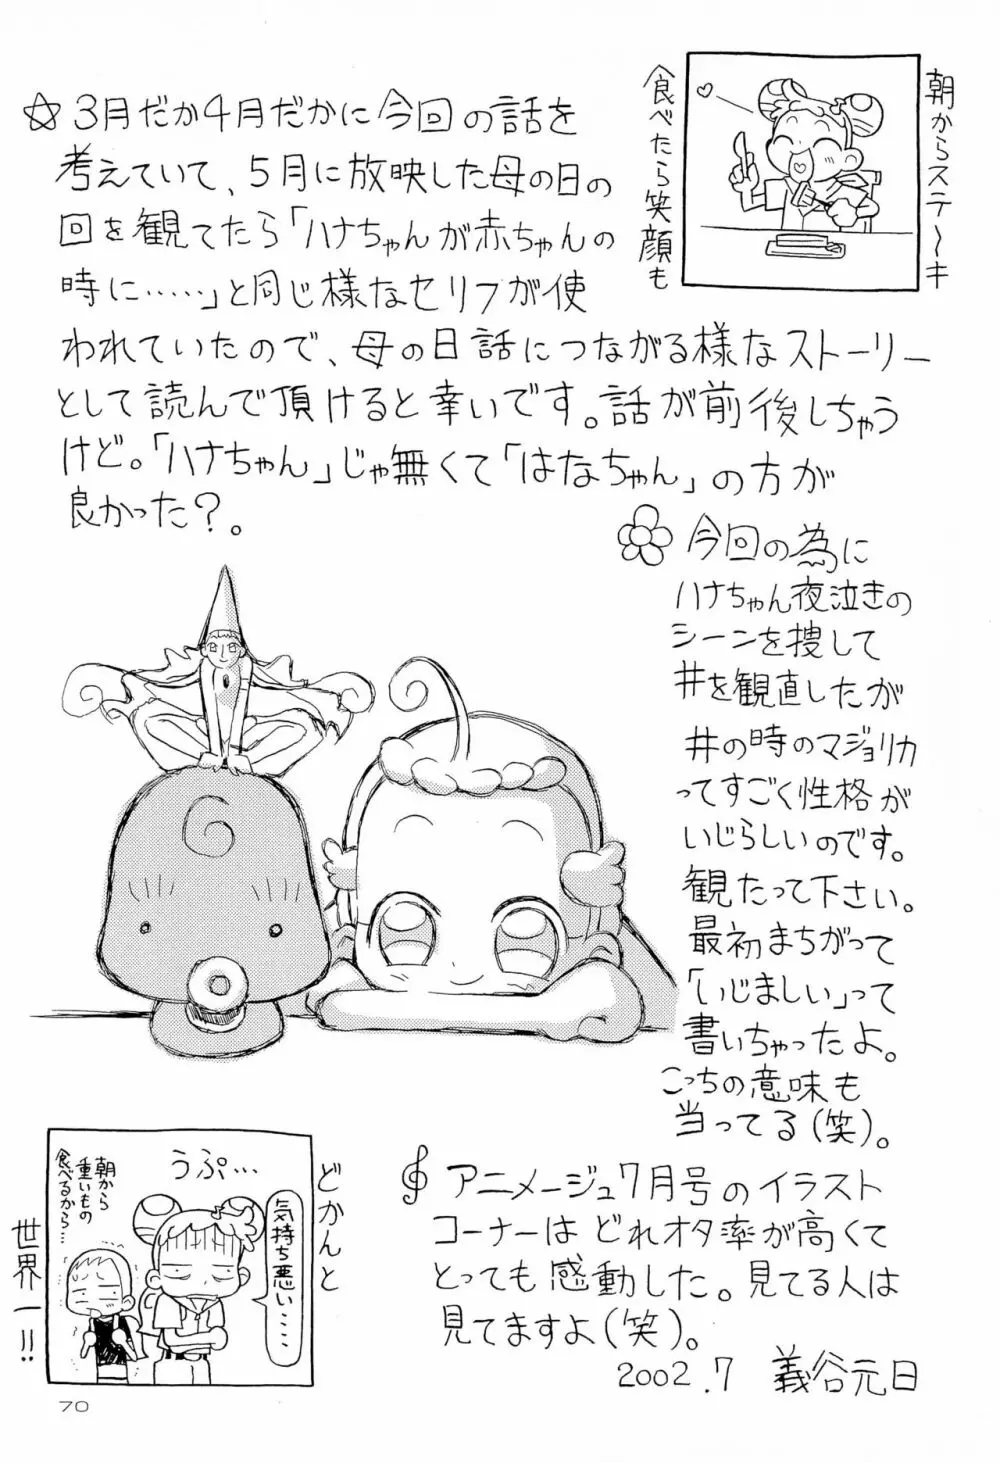 朝からステ〜キ
食べたら笑顔も
☆3月だか4月だかに今回の話を
考えていて、5月に放映した母の日の
回を観てたら「ハナちゃんが赤ちゃんの
時に……」と同じ様なセリフが使
われていたので、母の日話につながる様なストーリー
として読んで頂けると幸いです。話が前後しちゃう
けど。「ハナちゃん」じゃ無くて「はなちゃん」の方が
良かった?。
今回の為に
ハナちゃん夜泣きの
シーンを捜して
#を観直したが
#の時のマジョリカ
ってすごく性格が
いじらしいのです。
観たって下さい。
最初まちがって
「いじましい」って
書いちゃったよ。
こっちの意味も
当ってる(笑)。
どかんと
世界一!!
うぷ…
気持ち悪い……
朝から
重いもの
食べるから…
アニメージュ7月号のイラスト
コーナーは どれオタ率が高くて
とっても感動した。見てる人は
見てますよ(笑)。
2002.7 義谷元日
70